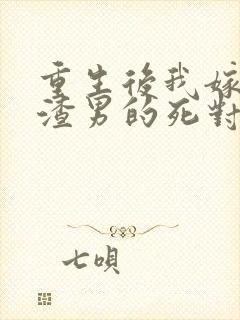 重生後我嫁
渣男的死對
七唄